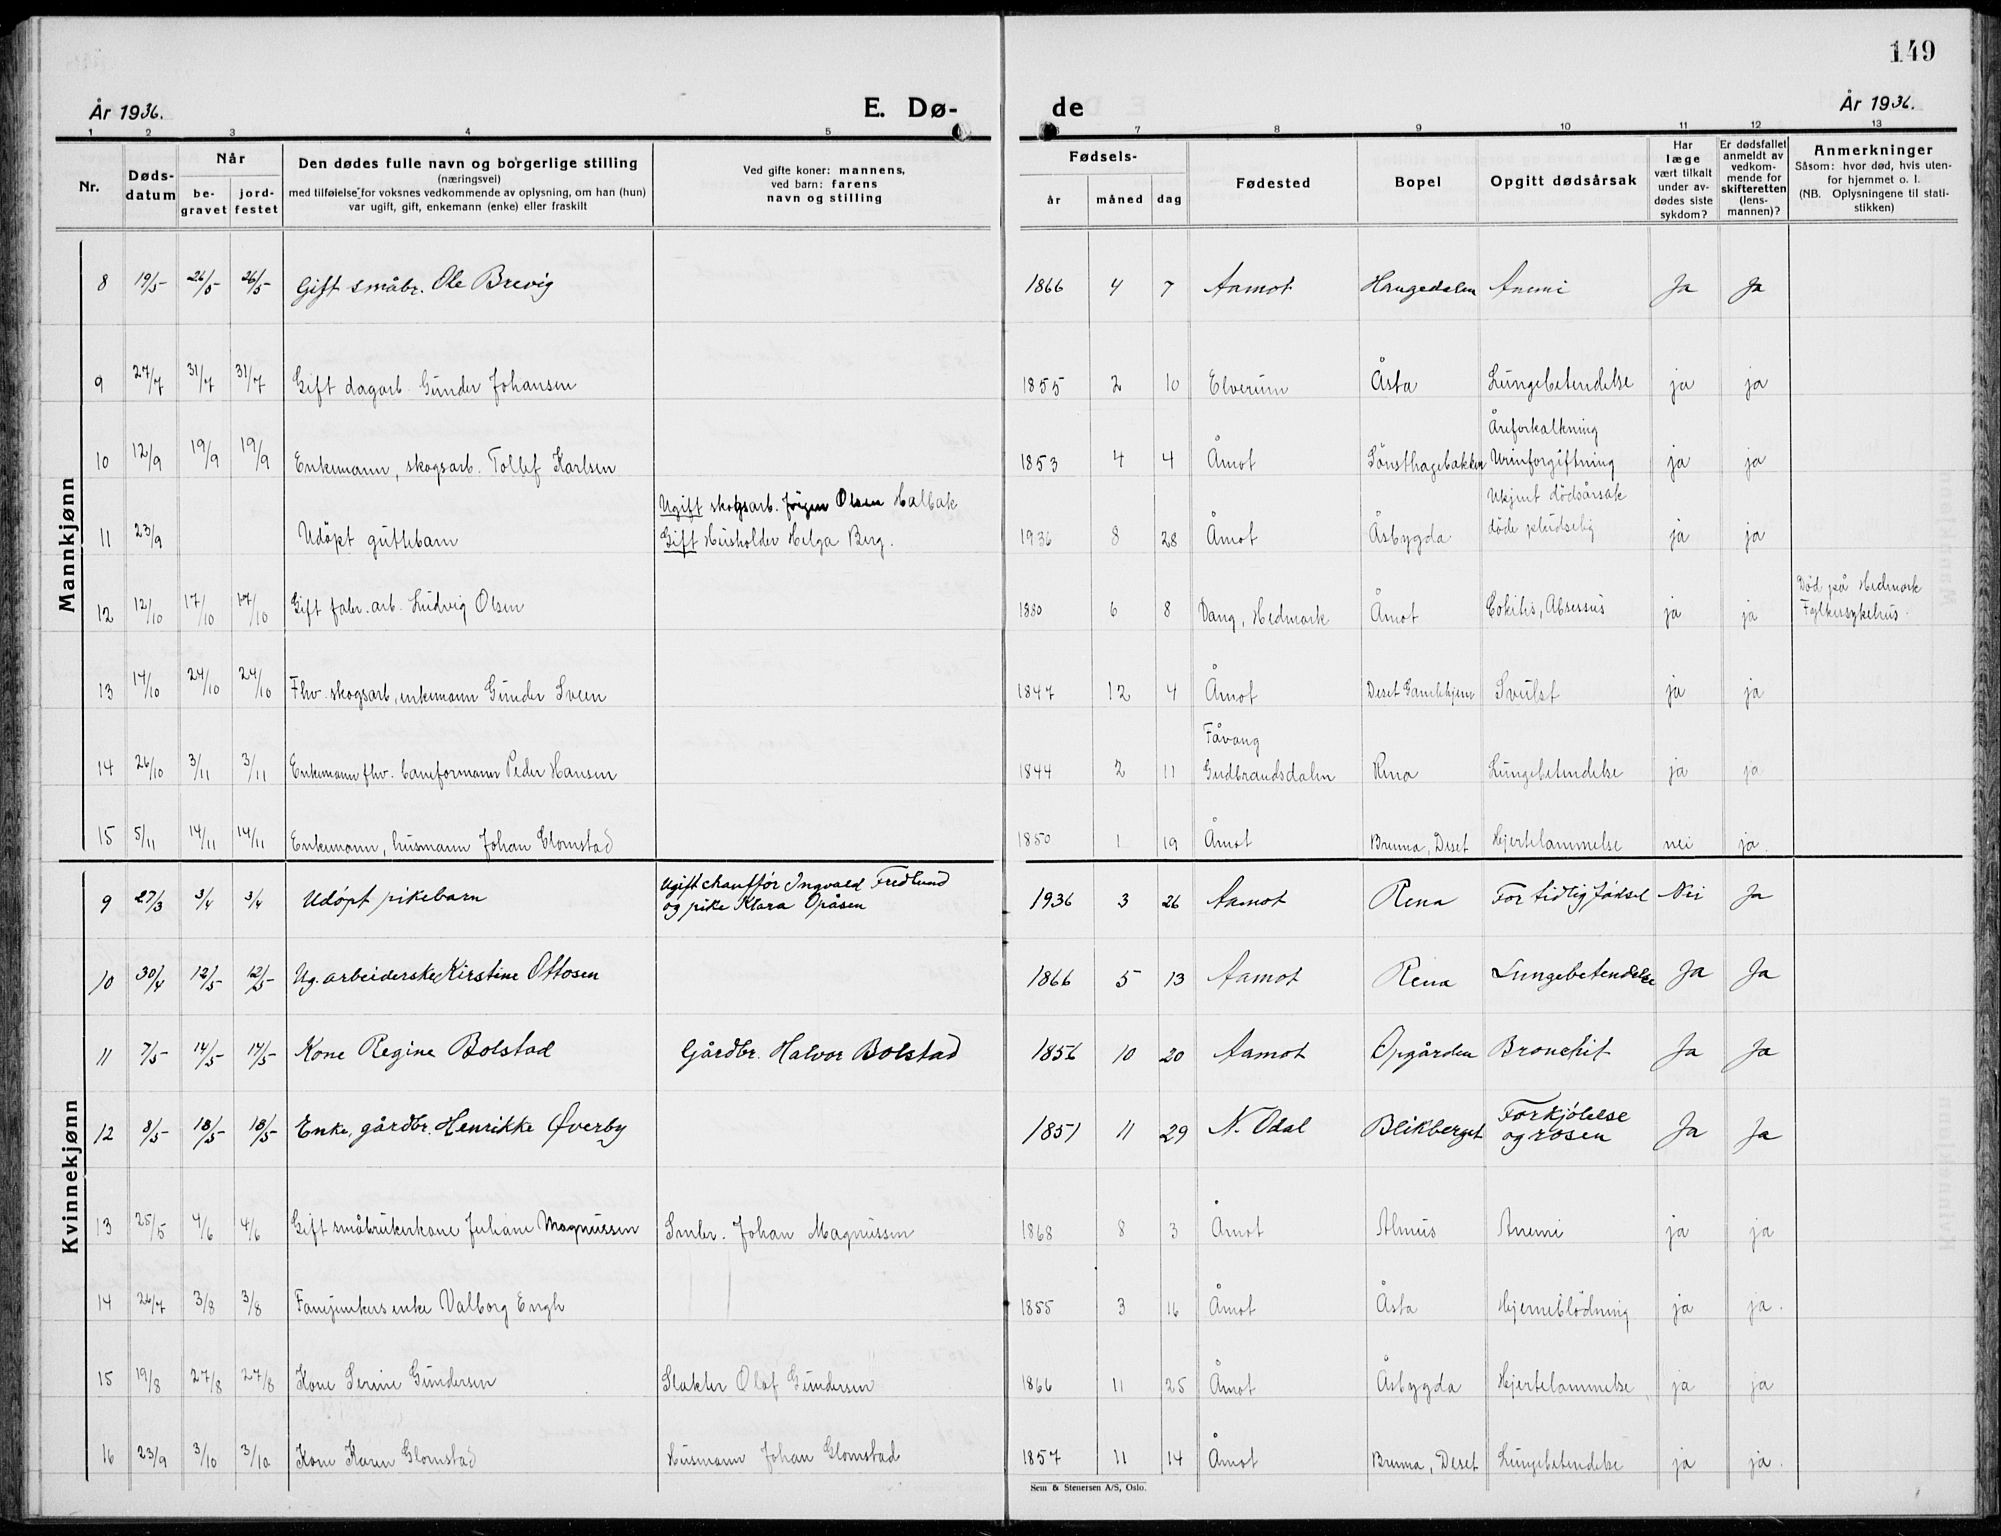 149
År 1936. E. Dø- de År 1936.
1 2 3 4 5 6 7 8 9 10 11 12 13
Nr. Døds-datum Når be-gravet jord-festet
Den dødes fulle navn og borgerlige stilling
(næringsvei)
med tilføielse for voksnes vedkommende av oplysning, om han (hun)
var ugift, gift, enkemann (enke) eller fraskilt
Ved gifte koner: mannens,
ved barn: farens
navn og stilling
Fødsels-
år måned dag
Fødested Bopel Opgitt dødsårsak
Har læge vært tilkalt under av-dødes siste sykdom?
Er dødsfallet anmeldt av vedkom-mende for skifteretten (lens-mannen)?
Anmerkninger
Såsom: hvor død, hvis uten-
for hjemmet o. l.
(NB. Oplysningene til stati-
stikken)
Mannkjønn
8 19/5 26/5 26/5 Gift småbr. Ole Brevig 1866 4 7 Aamot Haugedalen Anemi Ja Ja
9 27/7 31/7 31/7 Gift dagarb. Gunder Johansen 1855 2 10 Elverum Åsta Lungebetendelse ja ja
Åreforkalkning
10 12/9 19/9 19/9 Enkemann, skogsarb. Tollef Karlsen 1853 4 4 Åmot Sönsthagebakken Urinforgiftning ja ja
Ugift skogsarb. Jörgen Olsen Halbak Ukjent dödsårsak
11 23/9 Udöpt guttebarn Gift Husholder Helga Berg. 1936 8 28 Åmot Åsbygda döde pludselig ja ja
12 12/10 17/10 17/10 Gift fabr. arb. Ludvig Olsen 1880 6 8 Vang, Hedmark Åmot Cokitis, Absessus ja ja Död på Hedmark
Fylkessykehus.
13 14/10 24/10 24/10 Fhv. skogsarb, enkemann Gunder Sveen 1847 12 4 Åmot Deset Gamlehjem Svulst ja ja
Fåvang
14 26/10 3/11 3/11 Enkemann fhv. baneformann Peder Hansen 1844 2 11 Gudbrandsdalen Rena Lungebetendelse ja ja
15 5/11 14/11 14/11 Enkemann, husmann Johan Glomstad 1850 1 19 Åmot Brenna, Deset Hjertelammelse nei ja.
Kvinnekjønn
9 27/3 3/4 3/4 Udöpt pikebarn Ugift chauffør Ingvald Fredlund
og pike Klara Opåsen 1936 3 26 Aamot Rena For tidlig fødsel Nei Ja
10 30/4 12/5 12/5 Ug. arbeiderske Kirstine Ottosen 1866 5 13 Aamot Rena Lungebetendelse Ja Ja
11 7/5 14/5 14/5 Kone Regine Bolstad Gårdbr. Halvor Bolstad 1856 10 20 Aamot Opgården Bronchit Ja Ja
12 8/5 18/5 18/5 Enke, gårdbr. Henrikke Øverby 1851 11 29 N. Odal Blikberget Forkjölelse
og rosen Ja Ja
13 25/5 4/6 4/6 Gift småbrukerkone Juliane Magnussen Smbr. Johan Magnussen 1868 8 3 Åmot Alnus Anemi ja ja
14 26/7 3/8 3/8 Fanejunkers enke Valborg Engh 1855 3 16 Åmot Åsta Hjerneblödning ja ja.
15 19/8 27/8 27/8 Kone Serine Gundersen Slakter Olaf Gundersen 1866 11 25 Åmot Åsbygda Hjertelammelse ja ja
16 23/9 3/10 3/10 Kone Karen Glomstad Husmann Johan Glomstad 1857 11 14 Åmot Brenna, Deset Lungebetendelse ja ja.
Sem & Stenersen A/S, Oslo.